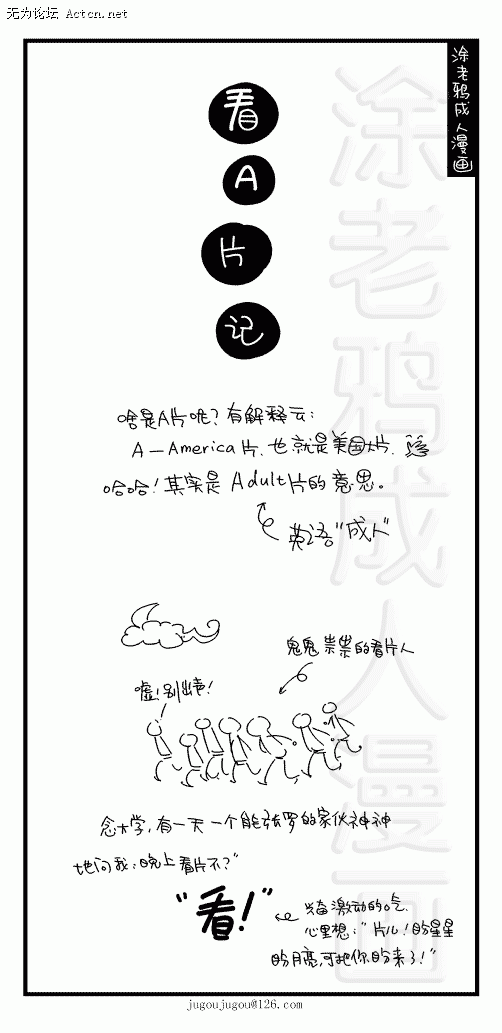 无为论坛 Actcn.net
涂老鸦成人漫画
看
A
片
记
涂老鸦成人漫画
啥是A片呢?有解释云:
A—America片,也就是美国大片,
哈哈!其实是 Adult片的意思。
英语"成人"
鬼鬼祟祟的看片人
嘘!别出声!
念大学,有一天一个能张罗的家伙神神
地问我:晚上看片不?"
"看!"
激动的吃,
心里想:"片儿!盼星星
盼月亮,可把你盼来了!"
jugoujugou@126.com